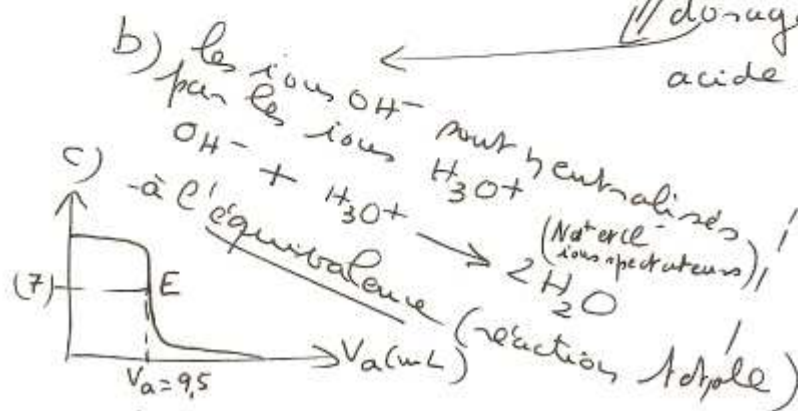 // dosage
acide
b) les ions OH- sont neutralisés
par les ions H3O+
OH- + H3O+ → 2H2O
(Na+ et Cl-
ions spectateurs)
c) -à l'équivalence (réaction totale)
(7)
E
Va(mL)
Va=9,5